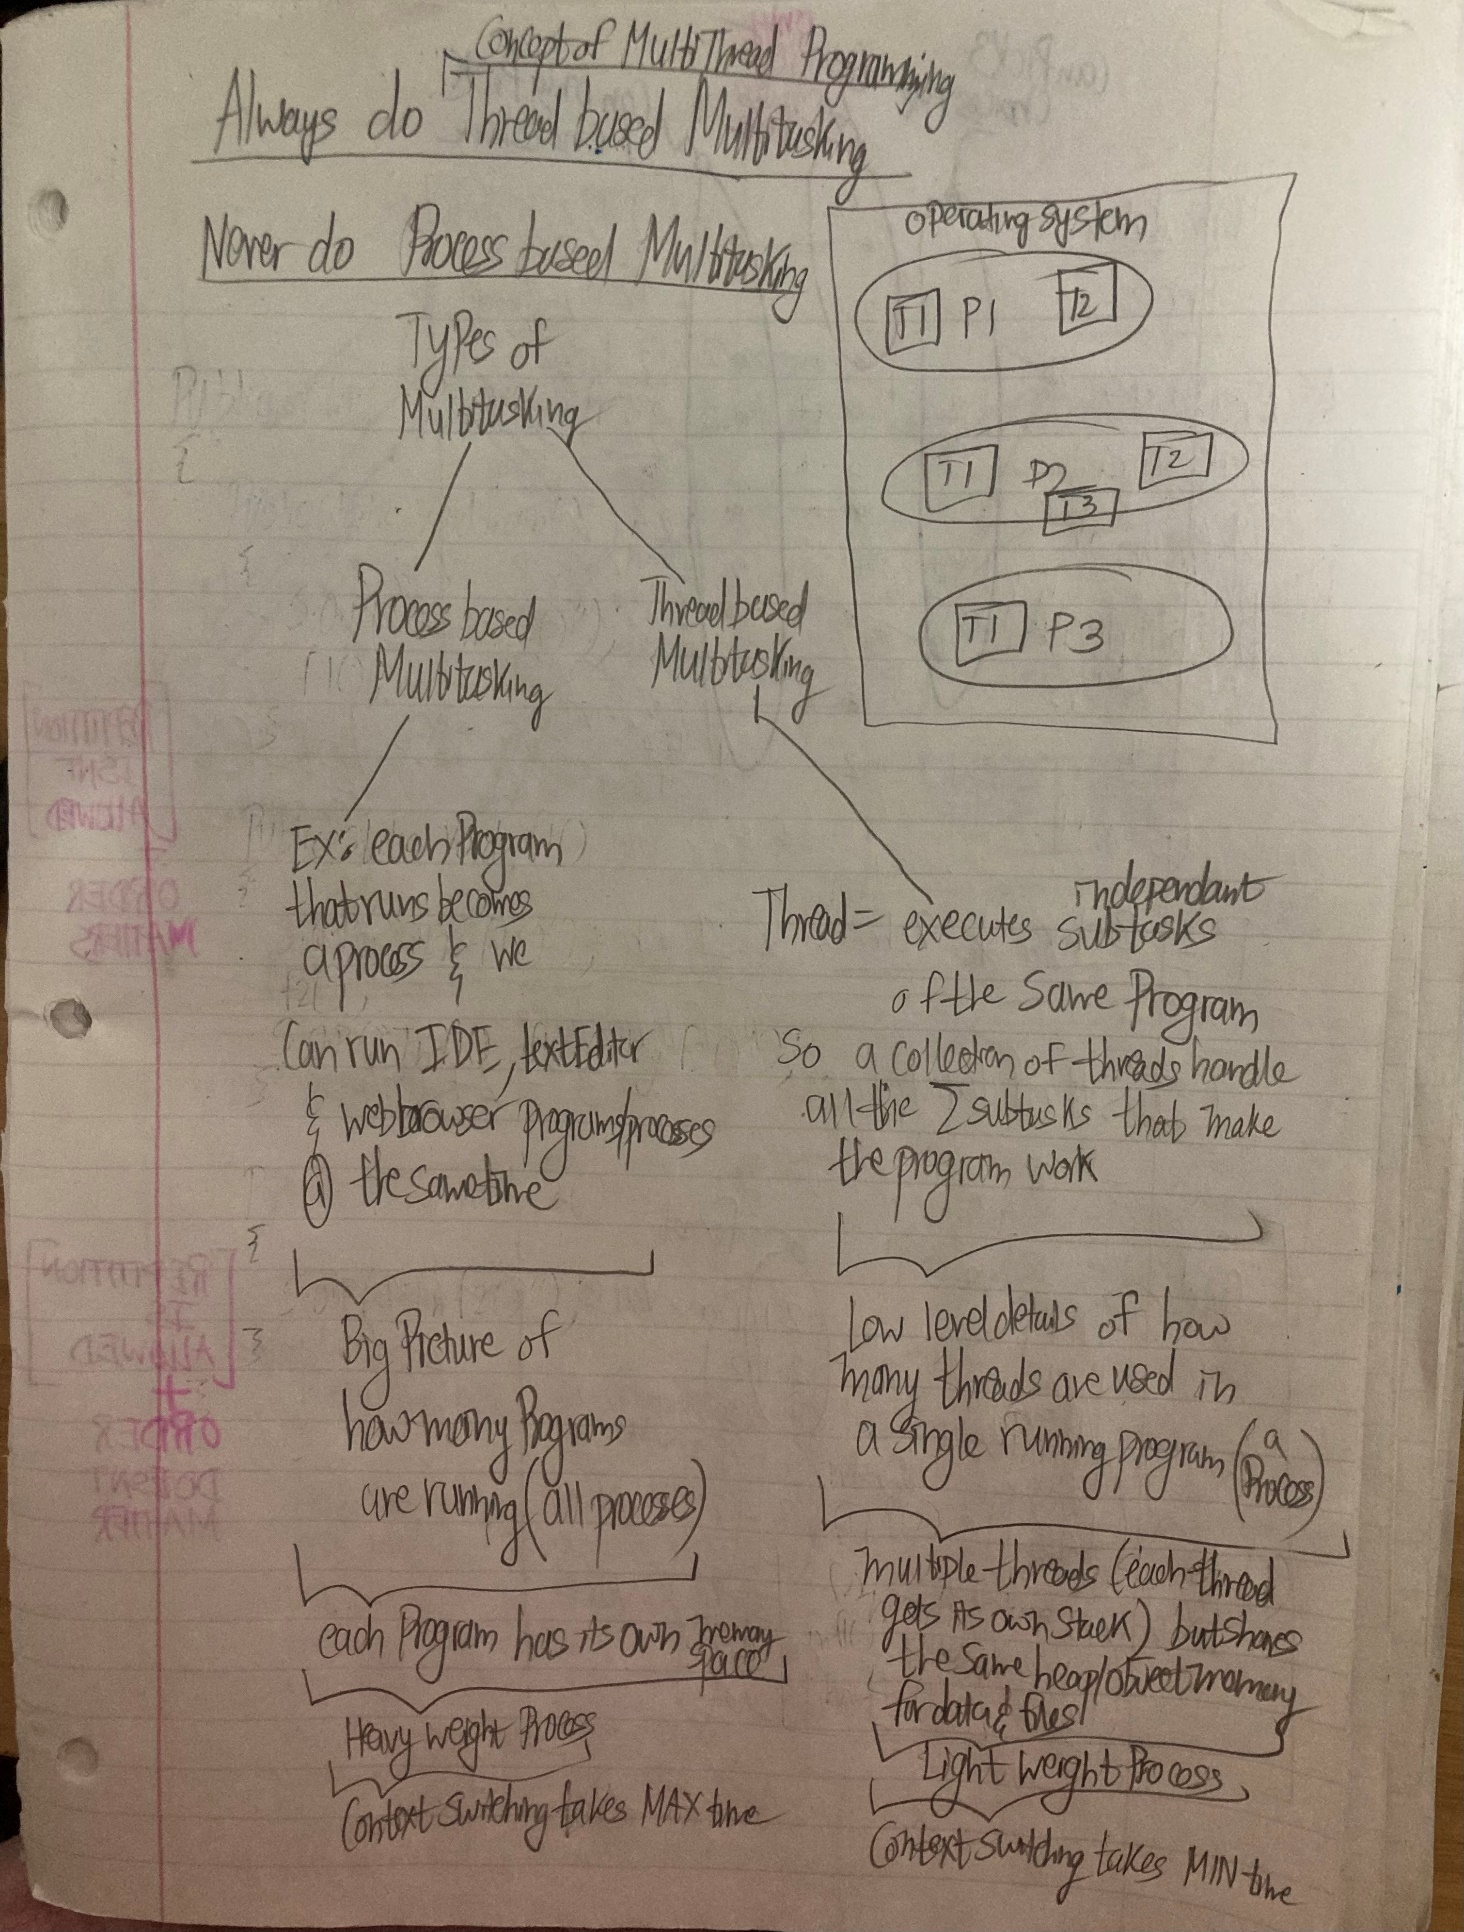 Concept of MultiThread Programming
Always do Thread based Multitasking
Never do Process based Multitasking
operating system
T1 P1 T2
T1 P2 T2
T3
T1 P3
Types of
Multitasking
Process based
Multitasking
Thread based
Multitasking
Ex: each Program
that runs becomes
a process & we
Can run IDE, text Editor
& web browser programs/processes
@ the same time
Big Picture of
how many Programs
are running (all processes)
each Program has its own memory
space
Heavy weight Process
Context switching takes MAX time
independant
Thread = executes subtasks
of the Same Program
So a collection of threads handle
all the Σ subtasks that make
the program work
Low level details of how
many threads are used in
a single running program (a
Process)
multiple threads (each thread
gets its own stack) but shares
the same heap/object memory
for data & files
Light weight Process
Context switching takes MIN time
REPETITION
ISNT
ALLOWED
ORDER
MATTERS
REPETITION
IS
ALLOWED
+
ORDER
DOESNT
MATTER